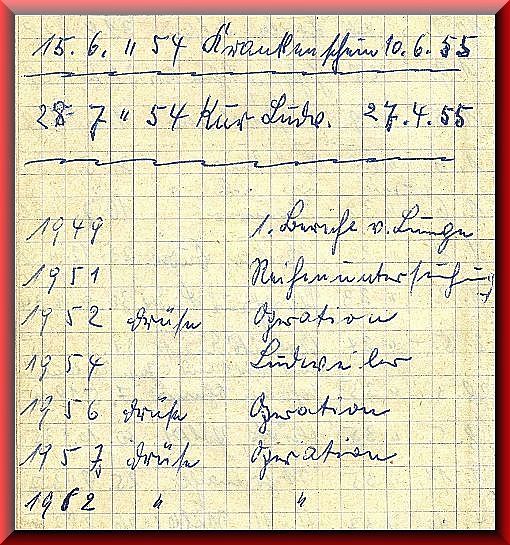 15. 6. " 54 Krankenschein 10. 6. 55
28 7 " 54 Kur Ludw. 27. 4. 55
1949 1. Bericht v. Lunge
1951 Reihenuntersuchung
1952 Drüse Operation
1954 Ludweiler
1956 Drüse Operation
1957 Drüse Operation.
1962 " "